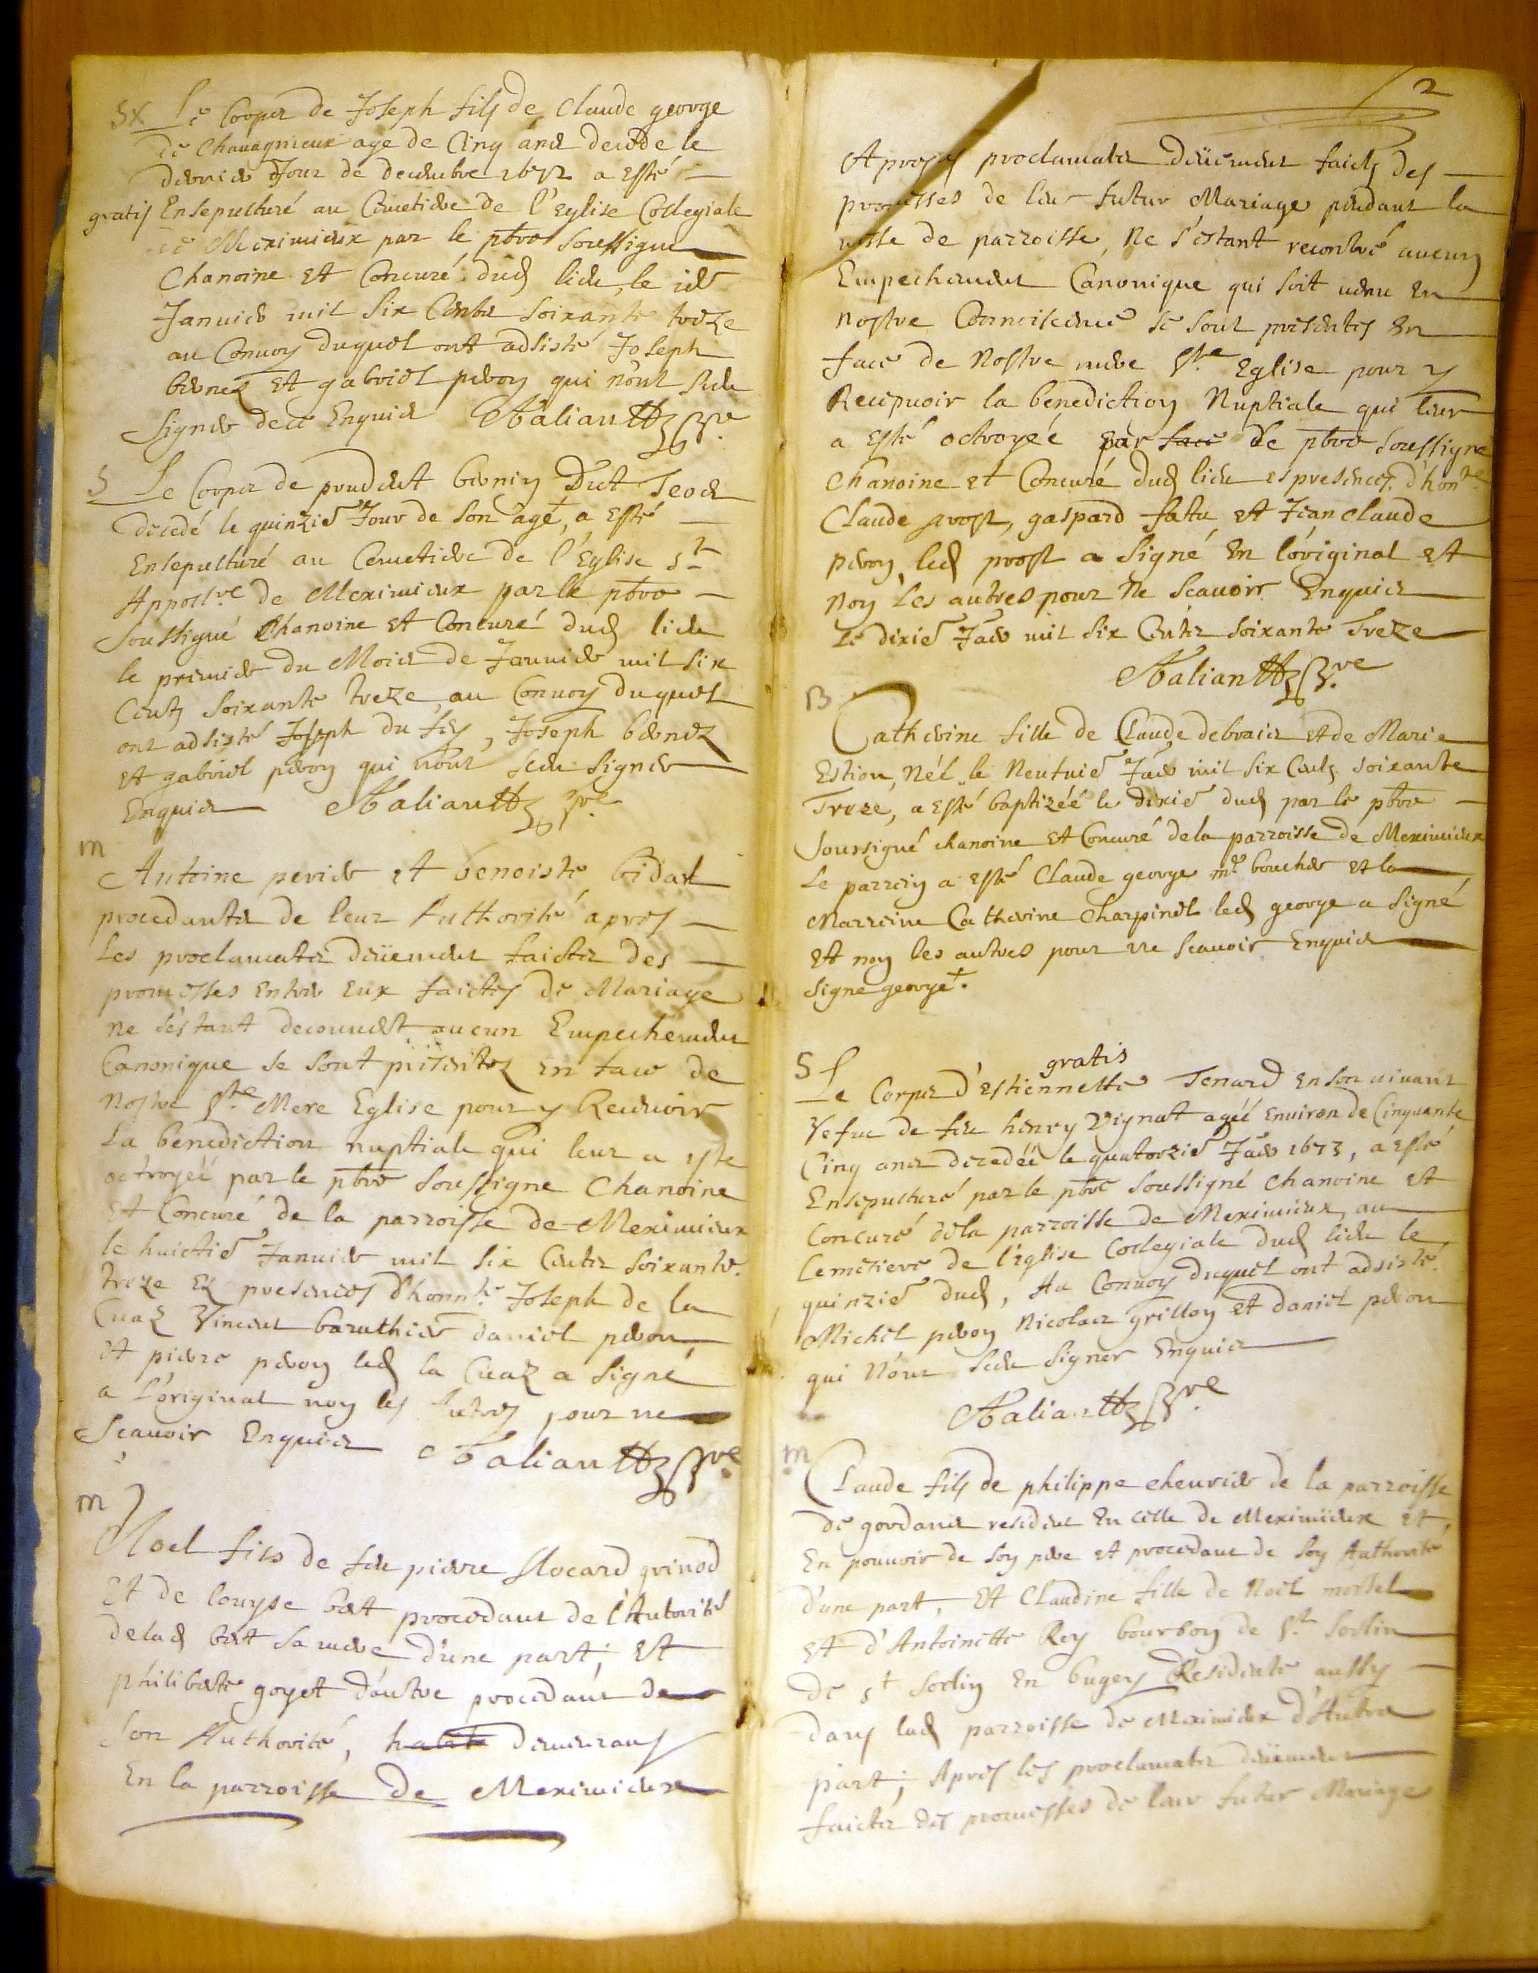 Sx Le Corps de Joseph fils de Claude george
de Chauagnieux agé de Cinq ans decede le
dernier Jour de decembre 1672 a Esté
gratis Ensepulturé au Cimetiere de l'Eglise Collegiale
de Meximieux par le pbre soussigne
Chanoine Et Concuré dud lieu, le ier
Januier mil six Cents soixante treze
au Conuoy duquel ont adsisté Joseph
bernez Et gabriel peron qui n'ont sceu
signer de ce Enquis
S Le Corps de prudent
decedé le quinzie Jour de son agé, a Esté
Ensepulturé au Cemetiere de l'Eglise st
Appostre de Meximieux par le pbre
soussigné Chanoine Et Concuré dud lieu
le premier du Mois de Januier mil six
Cents soixante treze, au Conuoy duquel
ont adsisté Joseph du , Joseph bernez
Et gabriel peron qui n'ont sceu signer
Enquis
m
Antoine perier et benoiste bidal
procedants de leur Authorité apres
Les proclamats deüement faictes des
promesses entre eux faictes de Mariage
ne s'estant decouuert aucun Empechement
Canonique se sont pntes en face de
Nostre Ste Mere Eglise pour y Receuoir
La benediction nuptiale qui leur a este
octroyeé par le pbre Soussigne Chanoine
Et Concuré de la parroisse de Meximieux
le huictie Januier mil six Cents soixante
treze Es presences d'honnte Joseph de la
Cuaz Vincent baruthier daniel peron
et pierre peron led la Cuaz a signé
a L'original non les Autres pour ne
Scauoir Enquis
m
Noel fils de feu pierre Mocard
Et de Louyse bert procedant de l'Autorité
delad bert sa mere d'une part; Et
philiberte goyet d'autre procedant de
son Authorité, demeurans
En la parroisse de Meximieux
2
Apres proclamats deüement faicts des
promesses de leur futur Mariage pendant la
messe de parroisse, Ne s'estant recontré aucun
Empechement Canonique qui soit uenu En
nostre Connoiscence se sont presentes En
face de Nostre mere Ste Eglise pour y
Recepuoir la benediction Nuptiale qui leur
a Esté octroyeé par face de pbre soussigne
Chanoine et Concuré dud lieu es presences d'honte
Claude prost, gaspard fatu et Jean claude
peron, led prost a signé En l'original et
non Les autres pour Ne Scauoir Enquis
Le dixie Jaer mil six Cents soixante Treze
B
Catherine fille de Claude debrais et de Marie
Estion, Née le Neufuie Jaer mil six Cents soixante
Treze, a esté baptizéé le dixie dud par le pbre
soussigné chanoine et Concuré de la parroisse de Meximieux
Le parrein a esté Claude george me boucher et la
Marreine Catherine Charpinel led george a signé
et non les autres pour ne scauoir Enquis
signe george.
S gratis
Le Corps d'estiennette Tenard en son uiuant
Vefue de feu henry Vignat ageé enuiron de Cinquante
Cinq ans decedéé le quatorzie Jaer 1673, a esté
Ensepulturé par le pbre soussigné chanoine et
Concuré de la parroisse de Meximieux, au
Cemetiere de l'église Collegiale dud lieu le
quinzie dud, Au Conuoy duquel ont adsisté
Michel peron Nicolas grillon et daniel peron
qui N'ont sceu signer Enquis
m
Claude fils de philippe cheurier de la parroisse
de gordans resident en celle de Meximieux et
En pouuoir de son pere et procedant de son Authorité
d'une part, Et Claudine fille de Noel mortel
Et d'Antoinette Rey bourbon de St Sorlin
de st Sorlin En bugey Residente aussy
dans lad parroisse de Meximieux d'Autre
part; Apres les proclamats deüement
faictes des promesses de leur futur Mariage